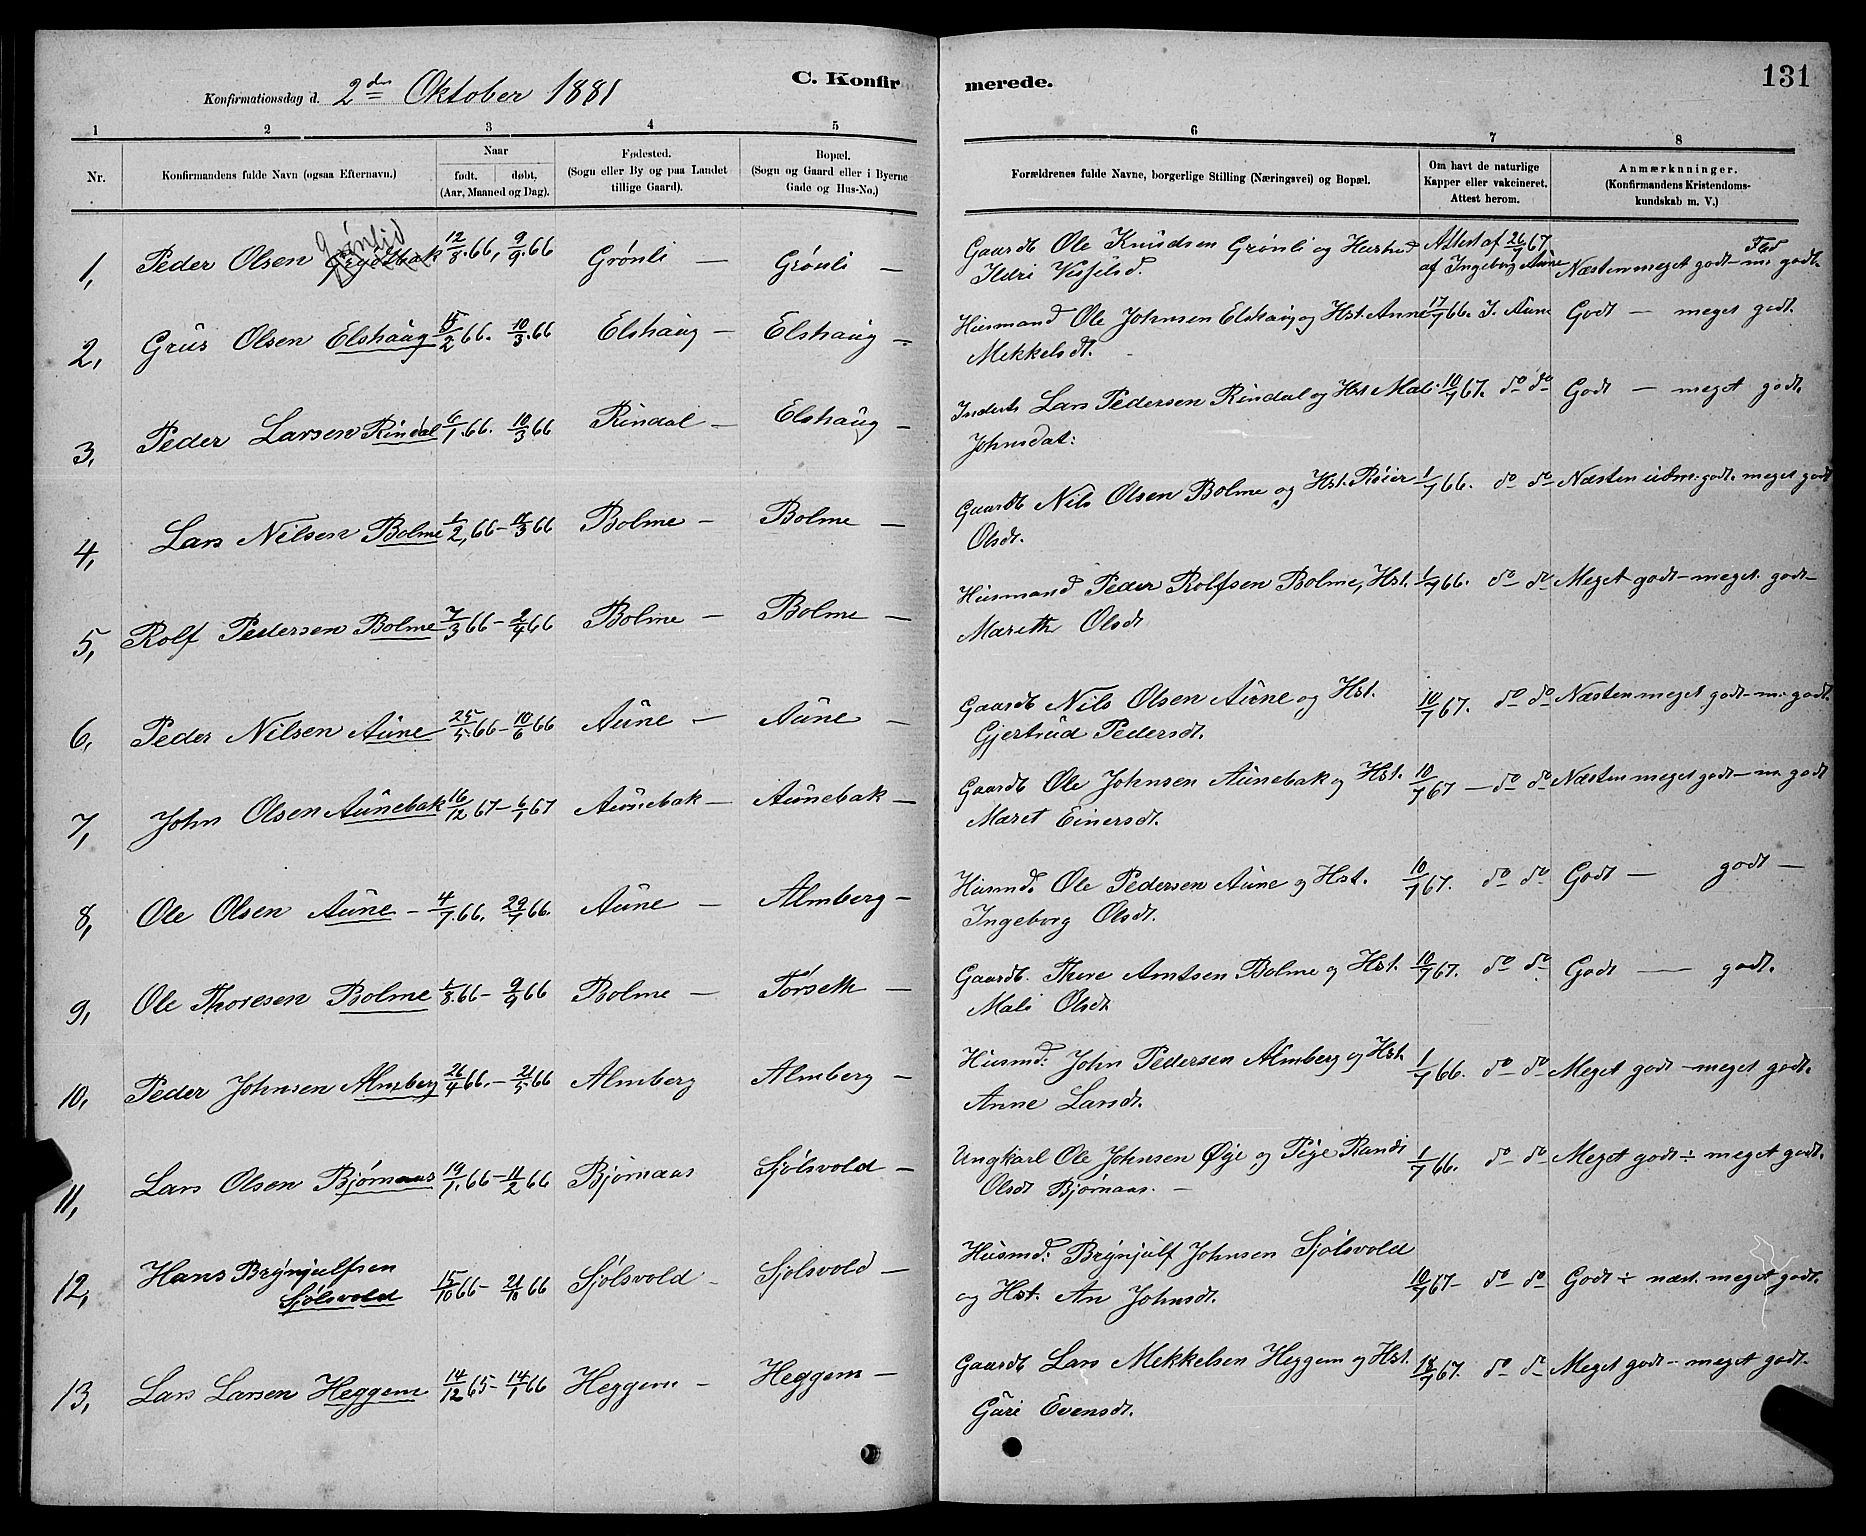 C. Konfirmerede. 131
Konfirmationsdag d. 2den Oktober 1881
1 2 3 4 5 6 7 8
Nr. Konfirmandens fulde Navn (ogsaa Efternavn.) Naar født. døbt. (Aar, Maaned og Dag). Fødested. (Sogn eller By og paa Landet tillige Gaard). Bopæl. (Sogn og Gaard eller i Byerne Gade og Hus-No.) Forældrenes fulde Navne, borgerlige Stilling (Næringsvei) og Bopæl. Om havt de naturlige Kapper eller vakcineret. Attest herom. Anmærkninger. (Konfirmandens Kristendoms-kundskab m. V.)
1, Peder Olsen Grønlid 12/8.66, 9/9.66 Grönli — Grönli — Gaardb Ole Knudsen Grønli og Hustru Attest af 26/7 67, af Ingeborg Aune Næsten meget godt — m. godt.
Ildri
2, Grus Olsen Elshaug 15/2 66. 10/3.66 Elshaug — Elshaug — Husmand Ole Johnsen Elshaug og Hst. Anne 17/7 66. I. Aune Godt — meget godt.
Mekkelsdt.
3, Peder Larsen Rindal 6/1.66. 10/3 66 Rindal — Elshaug — Inderst Lars Pedersen Rindal og Hst Mali 10/7 67. do do Godt — meget godt.
Johnsdat:
4, Lars Nilsen Bolme 1/2,66 - 11/3 66 Bolme — Bolme — Gaardb Nils Olsen Bolme og Hst. Róier 1/7 66. do do Næsten udm. godt. meget godt
Olsdt.
5, Rolf Pedersen Bolme 7/3 66 - 2/4 66 Bolme — Bolme — Husmand Peder Rolfsen Bolme, Hst. 1/7 66. do do Meget godt — meget godt —
Mareth Olsdt
6, Peder Nilsen Aune 25/5.66 - 10/6 66 Aune — Aune — Gaardb Nils Olsen Aune og Hst. 10/7 67. do do Næsten meget godt — m. godt.
Gjertrud Pedersdt.
7, John Olsen Aunebak 16/12 67 - 6/1 67 Aunebak — Aunebak — Gaardb Ole Johnsen Aunebak og Hst. 10/7 67 — do do Næsten meget godt — m. godt
Maret Einersdt.
8, Ole Olsen Aune — 4/7.66. 29/7 66. Aune — Almberg — Husmd. Ole Pedersen Aune og Hst. 10/7 67. do do Godt — godt —
Ingeborg Olsdt.
9, Ole Thoresen Bolme 1/8.66 — 9/9 66 Bolme — Törseth — Gaardb. Thore Arntsen Bolme og Hst. 10/7 67. do do Godt — godt.
Mali Olsdt
10, Peder Johnsen Almberg 26/4 66. — 21/5.66 Almberg Almberg — Husmd: John Pedersen Almberg og Hst. 1/7 66. do do Meget godt — meget godt.
Anne Larsdt.
11, Lars Olsen Bjørnaas 19/1.66 — 11/2 66 Bjørnaas Sjólsvold — Ungkarl Ole Johnsen Øye og Pige Randi 1/7 66. do do Meget godt ÷ meget godt.
Olsdt Bjornaas. —
12, Hans Brynjulfsen Sjólsvold 15/10 66 — 21/10 66 Sjólsvold — Sjólsvold — Husmd: Brynjulf Johnsen Sjólsvold
og Hst. An Johnsdt. 10/7 67 — do do Godt ÷ næst. meget godt.
13, Lars Larsen Heggem 14/12 65 — 14/1 66 Heggem — Heggem — Gaardb Lars Mekkelsen Heggem og Hst. 18/7 67. do do Meget godt — meget godt —
Guri Evensdt.